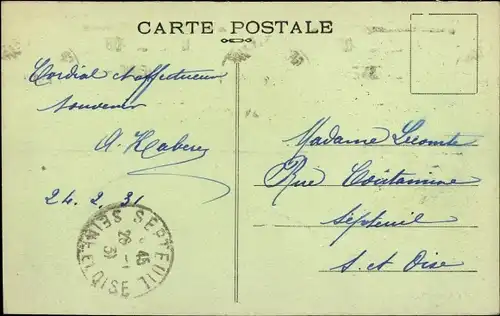 CARTE POSTALE
Cordial et affectueux
souvenir
A. Habere
24.2.31
SEPTEUIL
SEINE ET OISE
Madame Lecomte
Rue Contamine
Septeuil
S. et Oise